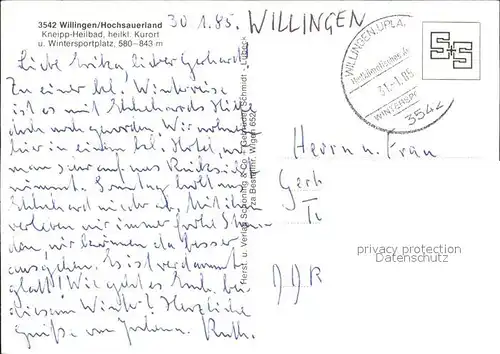 3542 Willingen/Hochsauerland
Kneipp-Heilbad, heilkl. Kurort
u. Wintersportplatz, 580–843 m
30.1.85. WILLINGEN
Liebe Erika, lieber Gerhard!
Zu einer kl. Winterreise
ist es mit Ekkehards Hilfe
doch noch geworden. Wir wohnen
hier in einem kl. Hotel, wo
man sehr auf uns Rücksicht
nimmt. Sonntag holt uns
Ekkehard wieder ab. Mit ihm
verleben wir immer frohe Stun-
den, wir können da besser
ausgehen. Es ist verdammt
glatt! Wie geht es Euch bei
diesem Winter? Herzliche
Grüße von Johann. Ruth.
Herst. u. Verlag Schöning & Co + Gebrüder Schmidt · Lübeck
Bestellnr. Wigen 652
WILLINGEN, UPLA.
Heilklimatisches
31.-1.85
WINTERSP
3542
Herrn u. Frau
Gerh
DDR
privacy protection
Datenschutz